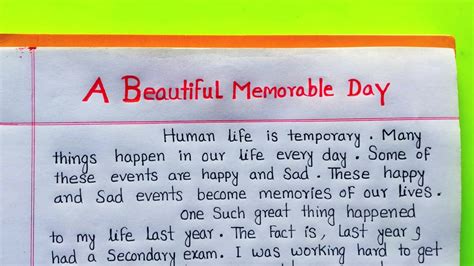 A Beautiful Memorable Day
Human life is temporary. Many
things happen in our life every day. Some of
these events are happy and Sad. These happy
and Sad events become memories of our lives.
One Such great thing happened
to my life Last year. The Fact is, Last year I
had a Secondary exam. I was working hard to get